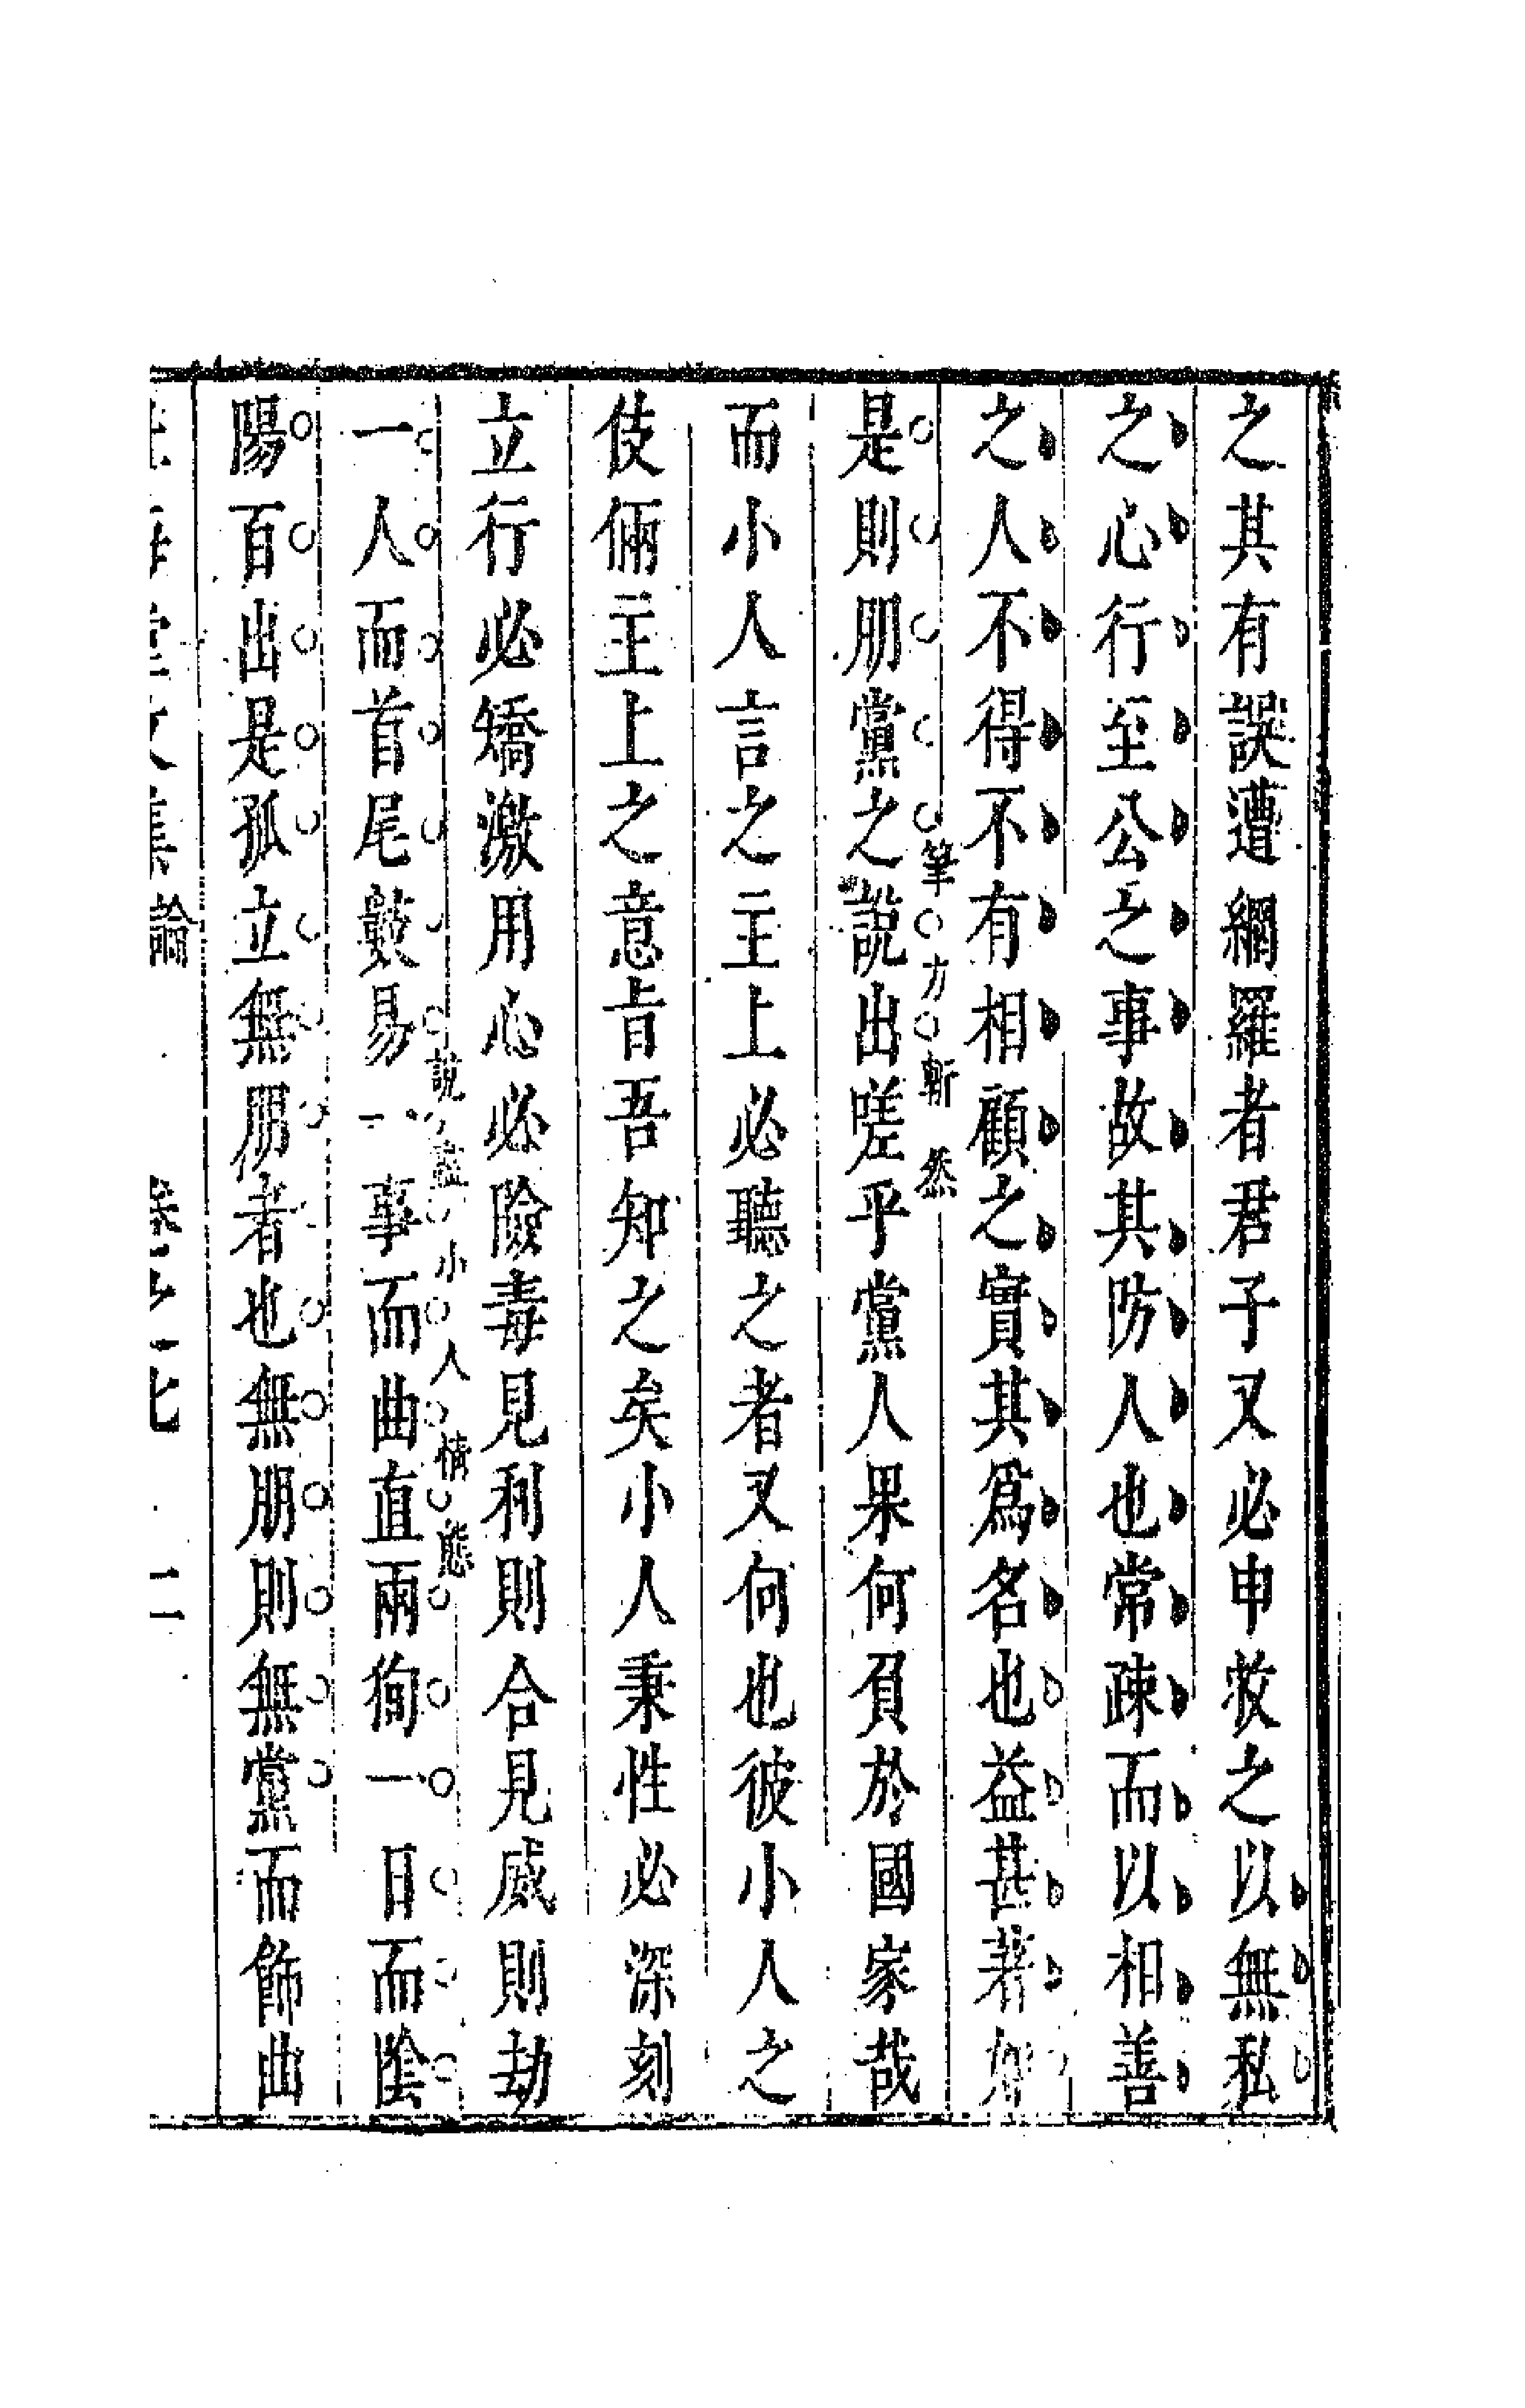 之其有誤遭網羅者君子又必申救之以無私
之心行至公之事故其防人也常疎而以相善
之人不得不有相顧之實其爲名也益甚著如
是則朋黨之說出嗟乎黨人果何負於國家哉
筆力斬然
而小人言之主上必聽之者又何也彼小人之
伎倆主上之意旨吾知之矣小人秉性必深刻
立行必矯激用心必險毒見利則合見威則劫
說盡小人情態
一人而首尾數易一事而曲直兩徇一日而陰
陽百出是孤立無朋者也無朋則無黨而飾曲
文集論 卷之七 二